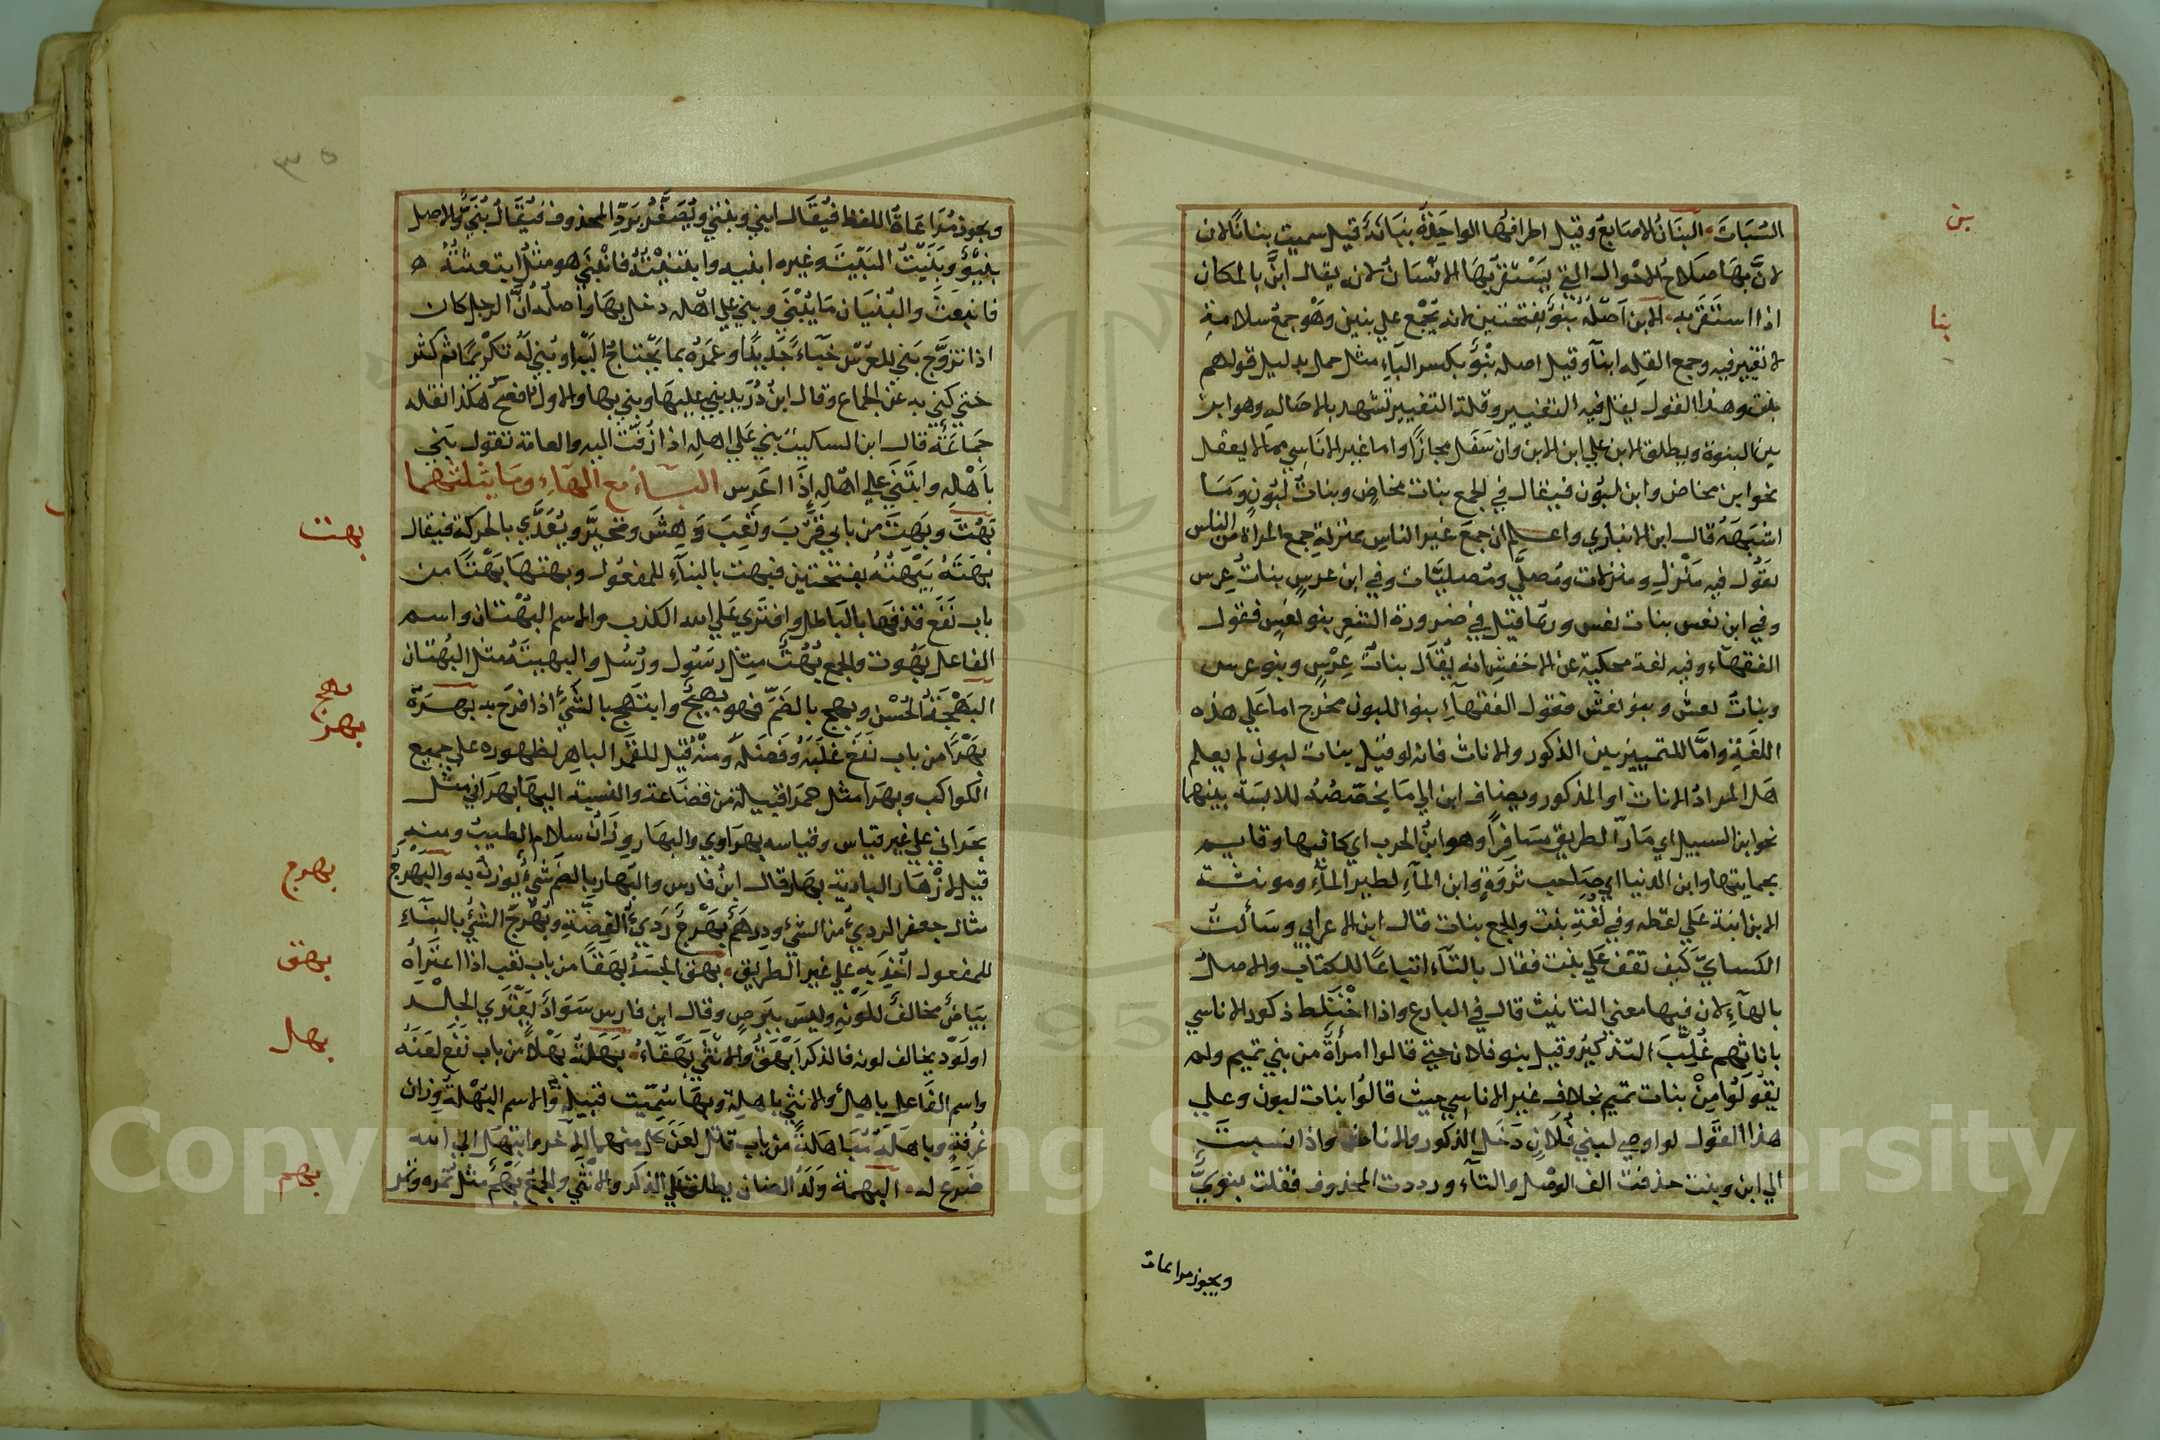 بن
بنا
السُبَاتَ • البَنَانُ الاصابعُ وقيل اطرافُها الواحِدَةُ بنَانَةٌ قيل سميت بنانًا لان
لانَّ بها صَلاحُ الاحْوال التي يَسْتقرُّ بهَا الانْسَانُ لانه يقال ابنَّ بالمكان
اذا استَقَرَّ به • الابن اَصْلُهُ بنَوٌ بفتحتين لانه يُجْمع على بنين وهْو جمعُ سلامةٍ
لا تغييرَ فيه وجمع القلِه ابناءٌ وقيل اصله بِنْوٌ بكسر البآءِ مثل حمل بدليل قولهم
بنتٌ وهذا القول يقلُ فيه التغيير وقلة التغيير تشهد بالاصاله وهو ابن
بين البنوة ويطلق الابن على ابن الابن وان سَفَل مجازًا واما غير الاَناسِي ممّا لا يعقل
نحو ابن مخاض وابن لبُون فيقال في الجمع بنات مخاضٍ وبناتُ لَبُونٍ ومَا
اشبَهَهُ قال ابن الانباري واعلم ان جمعَ غير الناسِ بمنزلةِ جمع المراة من الناس
تقُول فيه مَنْزلٌ ومنزلات ومُصلَّى ومُصليَّات وفي ابن عرسٍ بناتُ عِرس
وفي ابن نعش بنات نعش وربّما قيل في ضرورة الشعرِ بنو نعشٍ فقول
الفقهآء وفيه لغة محكية عن الاخفشِ انه يُقالُ بناتُ عِرْسٍ وبنو عرس
وبناتُ نعشٍ وبنو نعش فقول الفقهآءِ بنو اللبون مخرج اما على هذه
اللغَةِ وامَّا للتمييز بين الذكور والاناث فانه لو قيل بنات لبون لم يعلم
هل المرادُ الاناث او الذكور ويضاف ابن الي مَا يخصّصُهُ لملابسَة بينهما
نحو ابن السبيل اي مَارّ الطريق مسَافرًا وهو ابنُ الحرب اي كافيها وقايم
بحمايتها وابن الدنيا اي صَاحب ثروَةٍ وابن المآءِ لطير المآء ومونثة
الابن ابنة عَلي لفظه وفي لغَةٍ بنت والجمع بنات قال ابن الاعرابي وسَألتُ
الكسايَّ كَيف تقف عَلي بنت فقال بالتَّآء اتباعًا للكتاب والاصلُ
بالهآءِ لان فيها معني التانيث قال في البارع واذا اخْتَلط ذكور الاناسي
باناثهم غُلِّبَ التذكيرُ وقيل بنو فلان حتي قالوا امرأة من بني تميم ولم
يقُولُوا مِنْ بنات تميم بخلاف غير الاناسي حيث قالُوا بنات لبون وعلي
هذا القَول لو اوصي لبني فُلَانٍ دَخَل الذكور والاناث واذا نسبتَ
الي ابن وبنت حذفت الف الوصْل والتآء ورددت المحذوف فقلت بنويٌّ
ويجوز مراعات
٣٥
ويجوز مُرَاعَاةُ اللفظ فيُقَال ابني وبنتي ويُصَغَّرُ بَردِّ المحذوف فيُقَالُ بُنَيٌّ والاصل
بنيْوٌ وبَنَيْتُ البَيْتَ وغيره ابنيه وابتنيْتُهُ فانبَني هو مثلُ ابتعثتُهُ
فانبَعَثَ والبُنْيَان مَا يُبْنَي وبني علي اهْله دخل بهَا واَصلُه اَنَّ الرجل كان
اذا تزوَّج بَني للعرْسِ خبَآءً جَديدًا وعَمَرُهُ بما يحْتاجُ اليْه او بُني لَهُ تكْرِيمًا ثم كثر
حتي كُني به عَن الجماع وقال ابنُ دُرَيد بني عليها وبني بها والاولُ افصَحُ هكذا نقله
جَمَاعَةٌ قال ابن السكيتُ بَني عَلي اهلِه اذا زُفّت اليه والعامة تقول بَني
بأهْله وابْتَنَي علي اهْلهِ إذَا اعَرس البَاءُ مع الهَآءِ وما يثلثهما
بهت
بَهُتَ وبَهِتَ من بابي قَرُبَ وتَعِبَ دَهِشَ وتحيَّر ويُعَدَّي بالحركة فيقال
بهَتَهُ يَبْهَتُهُ بفتحتين فبهت بالبنآءِ للمفعُول وبهتهَا بَهْتًا من
باب نَفَع قذفها بالبَاطل وافتَري عَلي الله الكذب والاسم البُهْتان واسم
الفاعل بَهُوت والجمع بُهُتٌ مثل رسَول ورُسُل والبهيتَةُ مثل البُهتان
بهج
البَهْجَةُ الحُسْن وبهج بالضَمِّ فهو بهيجٌ وابتهَج بالشَّيء اذا فرَح به بهَرَهُ
بهر
بَهْرًا من باب نَفَع غلَبَهُ وفَضَلَهُ ومنْه قيل للقمَر الباهِر لظهوره علي جميع
الكواكب وبهَرا مثل حمرا قبيلة من قضَاعة والنسبة اليها بَهرَاني مثل
بحَراني علي غير قياس وقياسه بهرَاوي والبهَار وزَانُ سلام الطيبُ ومنه
قيل لازْهَار البادية بهَار قال ابنُ فارس والبَهار بالضم شَيْءٌ يوزنُ به والبَهرجُ
بهرج
مثال جعفر الرديءُ من الشيء ودِرهَمٌ بَهْرَجٌ رَديءُ الفِضّةِ وبُهْرِجَ الشيءُ بالبنآءِ
للمفعول اُخِذَ بهِ علي غير الطريق • بهق الجسَدُ بَهَقًا من باب تعب اذا اعتَراهُ
بهق
بيَاضٌ مخالفٌ للَونِهِ وليسَ ببَرصٍ وقال ابن فارس سَوَادٌ يَعْتري الجلد
او لَوْن يخالف لونه فالذكر اَبْهَقُ والانثي بَهْقآءُ • بَهَلَهُ بَهْلًا من باب نفَع لعَنَهُ
بهل
واسم الفَاعل باهلٌ والانثي باهلة وبهَا سُمِّيَت قبيلةٌ والاسم البُهْلةُ وِزان
غُرفةٍ وباهَلهُ مُبَاهَلةً من باب قاتل لعَنَ كل منهما الآخر وابتهَل الي الله
ضرَع له • البهمَة وَلَدُ الضان يطلق عَلي الذكر والانْثَي والجمْع بَهْمٌ مثل تمره وتمر
بهم